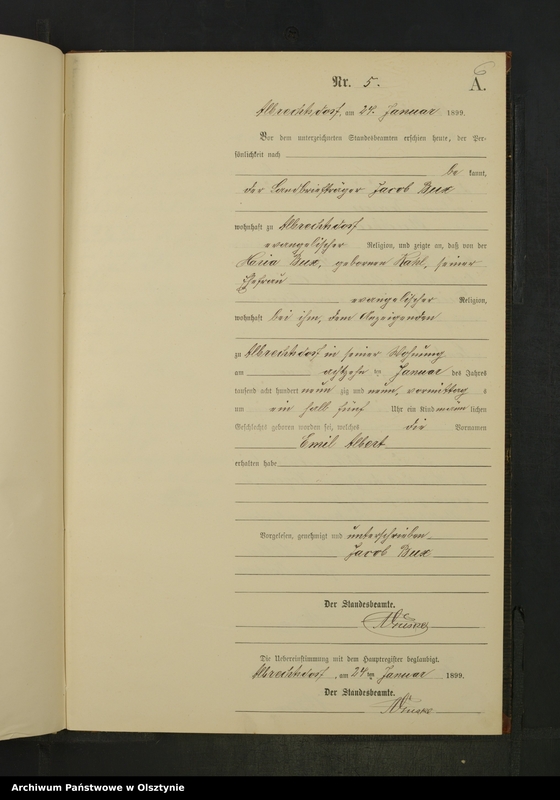 6
Nr. 5.
A.
Albrechtsdorf, am 24. Januar 1899.
Vor dem unterzeichneten Standesbeamten erschien heute, der Per-
sönlichkeit nach
be kannt,
der Landbriefträger Jacob Bux
wohnhaft zu Albrechtsdorf
evangelischer Religion, und zeigte an, daß von der
Maria Bux, geborenen Kahl, seiner
Ehefrau
evangelischer Religion,
wohnhaft bei ihm, dem Anzeigenden
zu Albrechtsdorf in seiner Wohnung
am achtzehn ten Januar des Jahres
tausend acht hundert neun zig und neun, vormittag s
um ein halb fünf Uhr ein Kind männ lichen
Geschlechts geboren worden sei, welches die Vornamen
Emil Albert
erhalten habe.
Vorgelesen, genehmigt und unterschrieben
Jacob Bux
Der Standesbeamte.
Die Uebereinstimmung mit dem Hauptregister beglaubigt.
Albrechtsdorf, am 24 ten Januar 1899.
Der Standesbeamte.
Archiwum Państwowe w Olsztynie